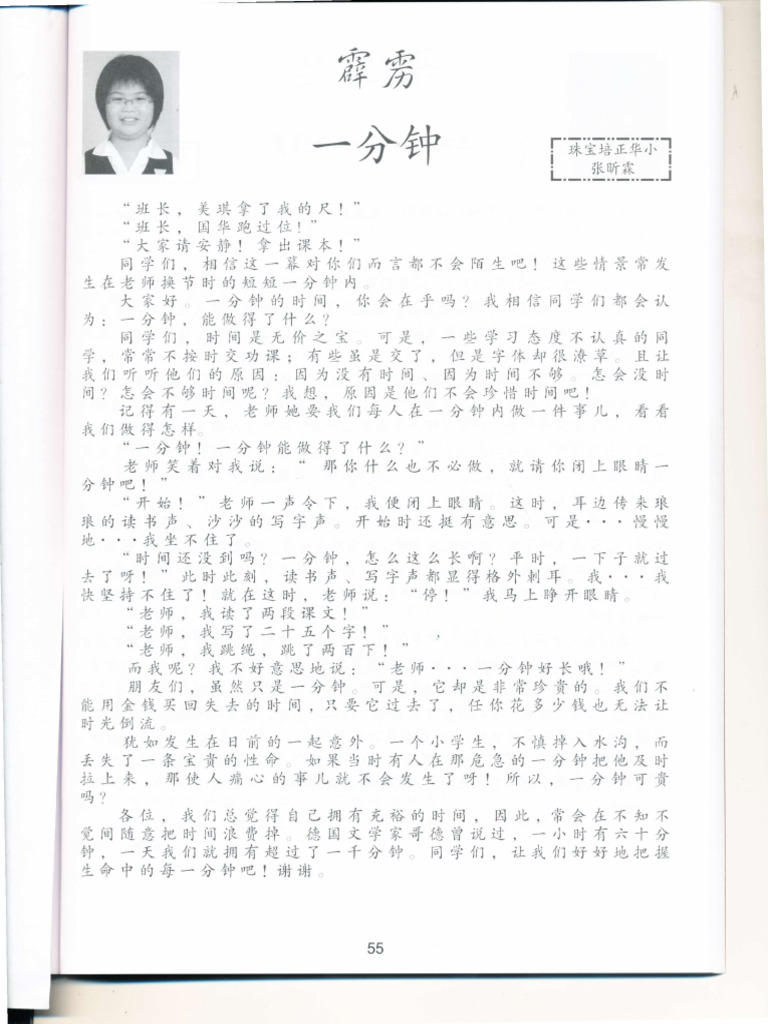 霹雳
一分钟
珠宝培正华小
张昕霖
“班长，美琪拿了我的尺！”
“班长，国华跑过位！”
“大家请安静！拿出课本！”
同学们，相信这一幕对你们而言都不会陌生吧！这些情景常发
生在老师换节时的短短一分钟内。
大家好。一分钟的时间，你会在乎吗？我相信同学们都会认
为：一分钟，能做得了什么？
同学们，时间是无价之宝。可是，一些学习态度不认真的同
学，常常不按时交功课；有些虽是交了，但是字体却很潦草。且让
我们听听他们的原因：因为没有时间、因为时间不够。怎会没时
间？怎会不够时间呢？我想，原因是他们不会珍惜时间吧！
记得有一天，老师她要我们每人在一分钟内做一件事儿，看看
我们做得怎样。
“一分钟！一分钟能做得了什么？”
老师笑着对我说：“那你什么也不必做，就请你闭上眼睛一
分钟吧！”
“开始！”老师一声令下，我便闭上眼睛。这时，耳边传来琅
琅的读书声、沙沙的写字声。开始时还挺有意思。可是···慢慢
地···我坐不住了。
“时间还没到吗？一分钟，怎么这么长啊？平时，一下子就过
去了呀！”此时此刻，读书声、写字声都显得格外刺耳。我···我
快坚持不住了！就在这时，老师说：“停！”我马上睁开眼睛。
“老师，我读了两段课文！”
“老师，我写了二十五个字！”
“老师，我跳绳，跳了两百下！”
而我呢？我不好意思地说：“老师···一分钟好长哦！”
朋友们，虽然只是一分钟。可是，它却是非常珍贵的。我们不
能用金钱买回失去的时间，只要它过去了，任你花多少钱也无法让
时光倒流。
犹如发生在日前的一起意外。一个小学生，不慎掉入水沟，而
丢失了一条宝贵的性命。如果当时有人在那危急的一分钟把他及时
拉上来，那使人痛心的事儿就不会发生了呀！所以，一分钟可贵
吗？
各位，我们总觉得自己拥有充裕的时间，因此，常会在不知不
觉间随意把时间浪费掉。德国文学家哥德曾说过，一小时有六十分
钟，一天我们就拥有超过了一千分钟。同学们，让我们好好地把握
生命中的每一分钟吧！谢谢。
55